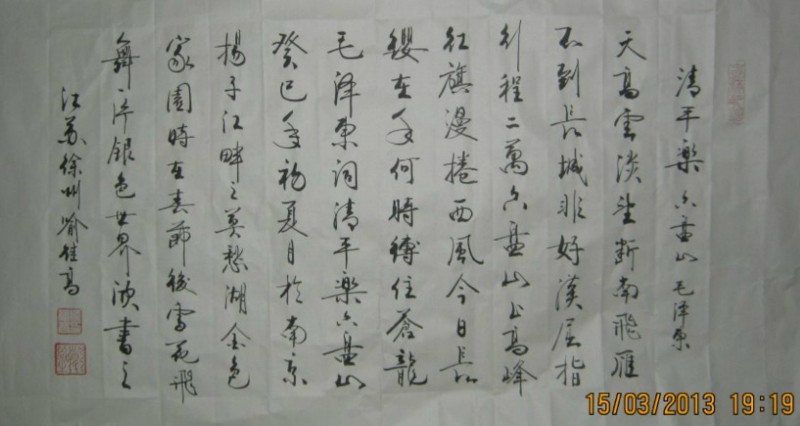 清平樂六盘山毛泽东
天高雲淡望断南飛雁
不到長城非好漢屈指
行程二萬六盘山上高峰
红旗漫捲西風今日長
纓在手何時縛住蒼龍
毛泽东词清平樂六盘山
癸巳年初夏月於南京
揚子江畔之莫愁湖金色
家園時在春節後雪花飛
舞片片銀色世界欣書之
江苏徐州喻佳高
15/03/2013 19:19